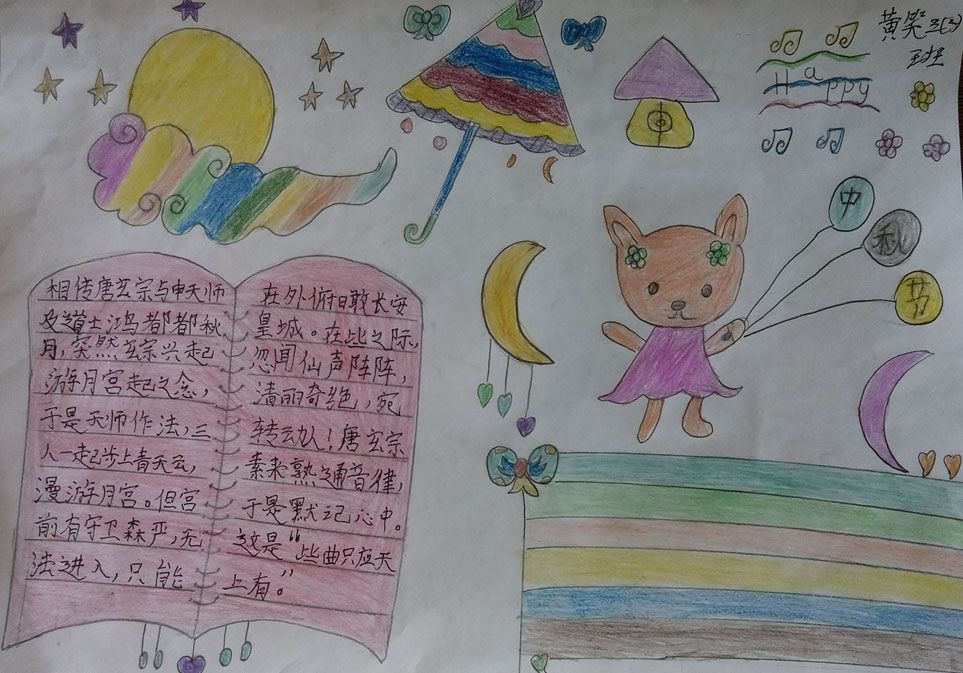 黄笑 三(3)
班
Happy
中
秋
节
相传唐玄宗与申天师
及道士鸿都都秋
月,突然玄宗兴起
游月宫起之念,
于是天师作法,三
人一起步上青天云,
漫游月宫。但宫
前有守卫森严,无
法进入,只能
在外俯瞰长安
皇城。在此之际,
忽闻仙声阵阵,
清丽奇绝,宛
转动人!唐玄宗
素来熟通音律,
于是默记心中。
这是“些曲只应天
上有。”